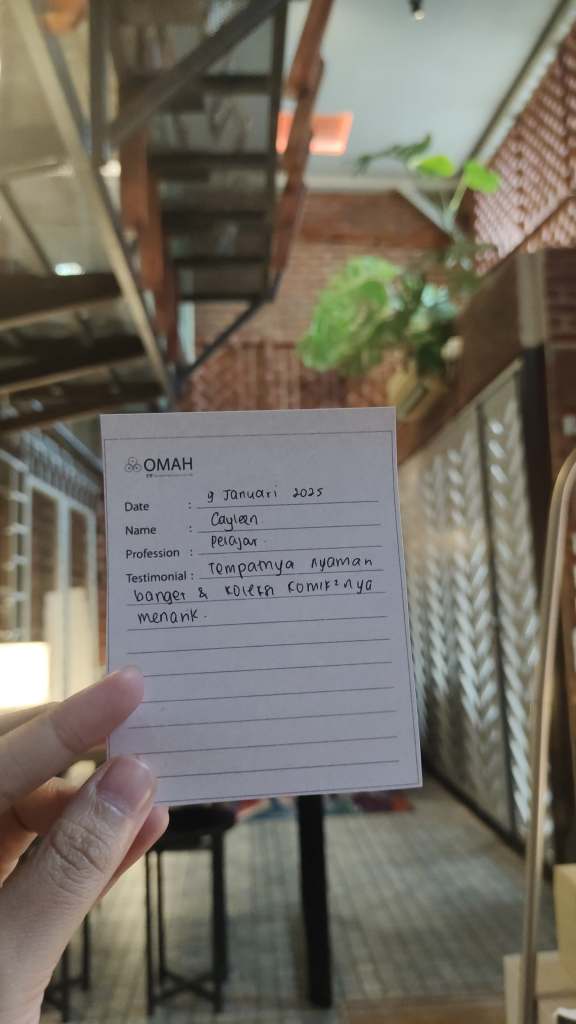 OMAH
Date : 9 Januari 2025
Name : Cayleen.
Profession : Pelajar.
Testimonial : Tempatnya nyaman
banget & koleksi komik²nya
menarik.